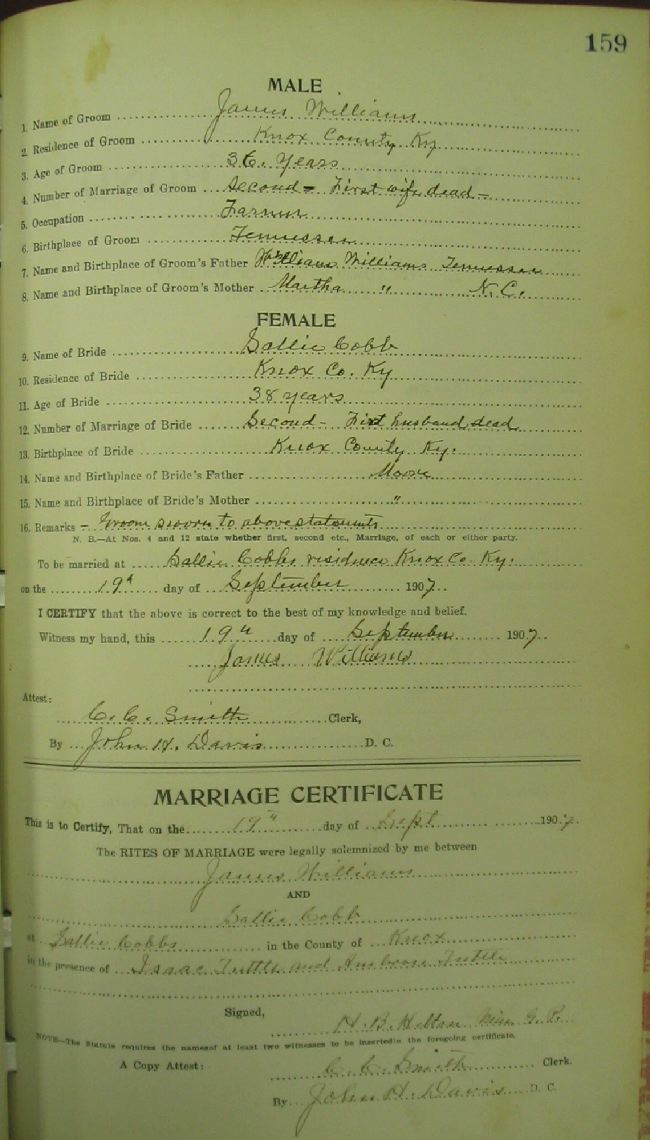 159
MALE
1. Name of Groom James Williams
2. Residence of Groom Knox County Ky
3. Age of Groom 36. Years
4. Number of Marriage of Groom Second - First wife dead -
5. Occupation Farmer
6. Birthplace of Groom Tennessee
7. Name and Birthplace of Groom's Father William Williams Tennessee
8. Name and Birthplace of Groom's Mother Martha " N.C.
FEMALE
9. Name of Bride Sallie Cobb
10. Residence of Bride Knox Co. Ky
11. Age of Bride 38 years
12. Number of Marriage of Bride Second - First husband dead
13. Birthplace of Bride Knox County Ky.
14. Name and Birthplace of Bride's Father Moore
15. Name and Birthplace of Bride's Mother "
16. Remarks - Groom sworn to above statements
N. B.—At Nos. 4 and 12 state whether first, second etc., Marriage, of each or either party.
To be married at Sallie Cobbs residence Knox Co. Ky.
on the 19th day of September 1907.
I CERTIFY that the above is correct to the best of my knowledge and belief.
Witness my hand, this 19th day of September 1907.
James Williams
Attest:
C. C. Smith Clerk,
By John H. Davis D. C.
MARRIAGE CERTIFICATE
This is to Certify, That on the 19th day of Sept 1907.
The RITES OF MARRIAGE were legally solemnized by me between
James Williams
AND
Sallie Cobb
at Sallie Cobbs in the County of Knox
in the presence of Isaac Tuttle and Ambrose Tuttle
Signed, H. B. Min G. P.
NOTE—The Statute requires the namesof at least two witnesses to be insertedin the foregoing certificate.
A Copy Attest: C. C. Smith Clerk.
By John H. Davis D. C.